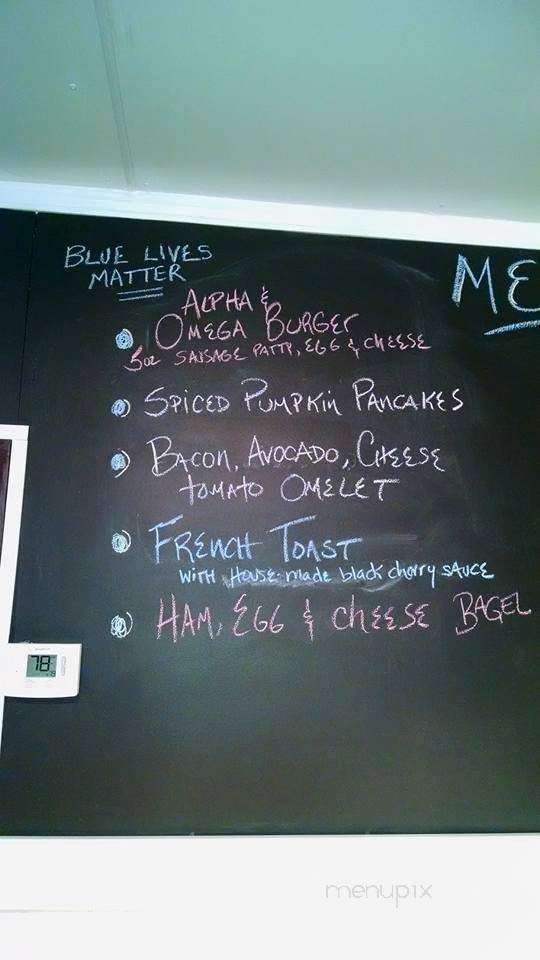 BLUE LIVES
MATTER
ME
ALPHA &
OMEGA BURGER
5oz SAUSAGE PATTY, EGG & CHEESE
SPICED PUMPKIN PANCAKES
BACON, AVOCADO, CHEESE
TOMATO OMELET
FRENCH TOAST
WITH House-made black cherry SAUCE
HAM, EGG & CHEESE BAGEL
78
menupix